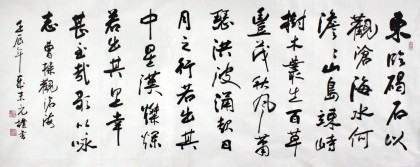 東臨碣石以
觀滄海水何
澹々山島竦峙
樹木叢生百草
豐茂秋風蕭
瑟洪波涌起日
月之行若出其
中星漢燦爛
若出其里幸
甚至哉歌以詠
志 曹操觀滄海
壬辰年 書